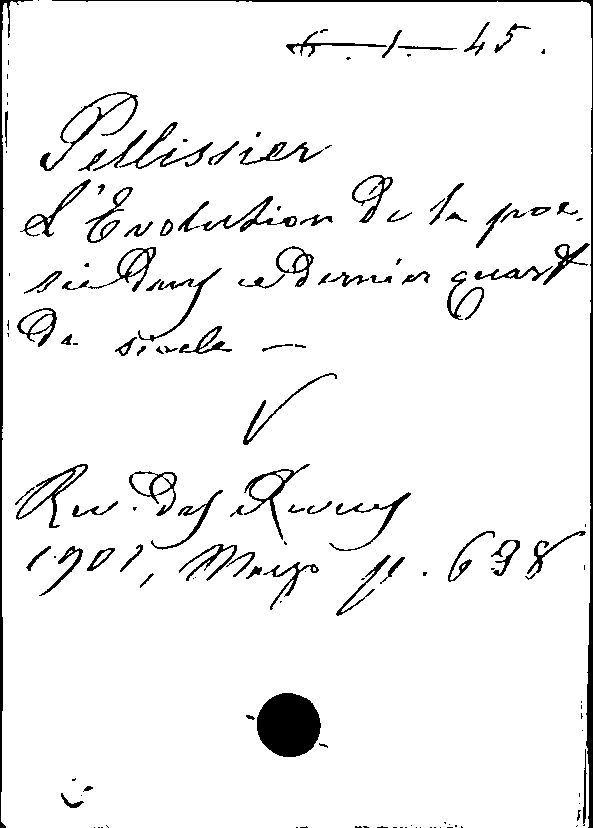 6.1.45.
Pellissier
L'Evolution de la poe-
sie dans ce dernier quart
de siecle —
V
Rev. des Revues
1901, Marzo p. 698